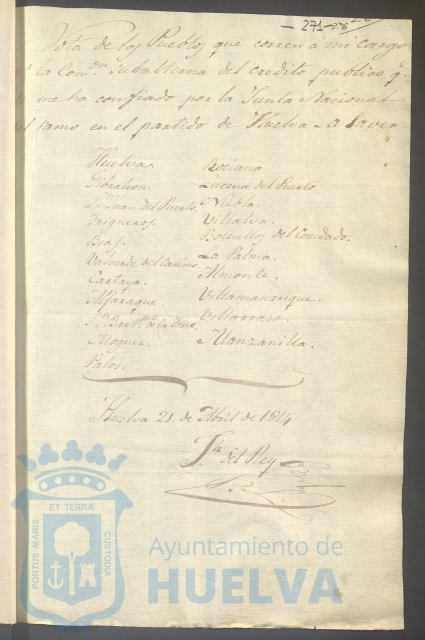 271
Nota de los Pueblos que corren a mi cargo
la Com.on Subalterna del credito publico q.e
me ha confiado por la Junta Nacional
del ramo en el partido de Huelva a saver
Huelva. Bociana
Gibraleon. Lucena del Puerto
S.n Juan del Puerto. Niebla.
Trigueros. Villalva.
Beas. Bollullos del Condado.
Valverde del Camino. La Palma.
Cartaya. Almonte.
Aljaraque. Villamanrrique.
S.n Bart.me de la Torre. Villarrasa.
Moguer. Manzanilla.
Palos.
Huelva 21. de Abril de 1814
del Rey
PORTUS MARIS ET TERRAE CUSTODIA
Ayuntamiento de
HUELVA